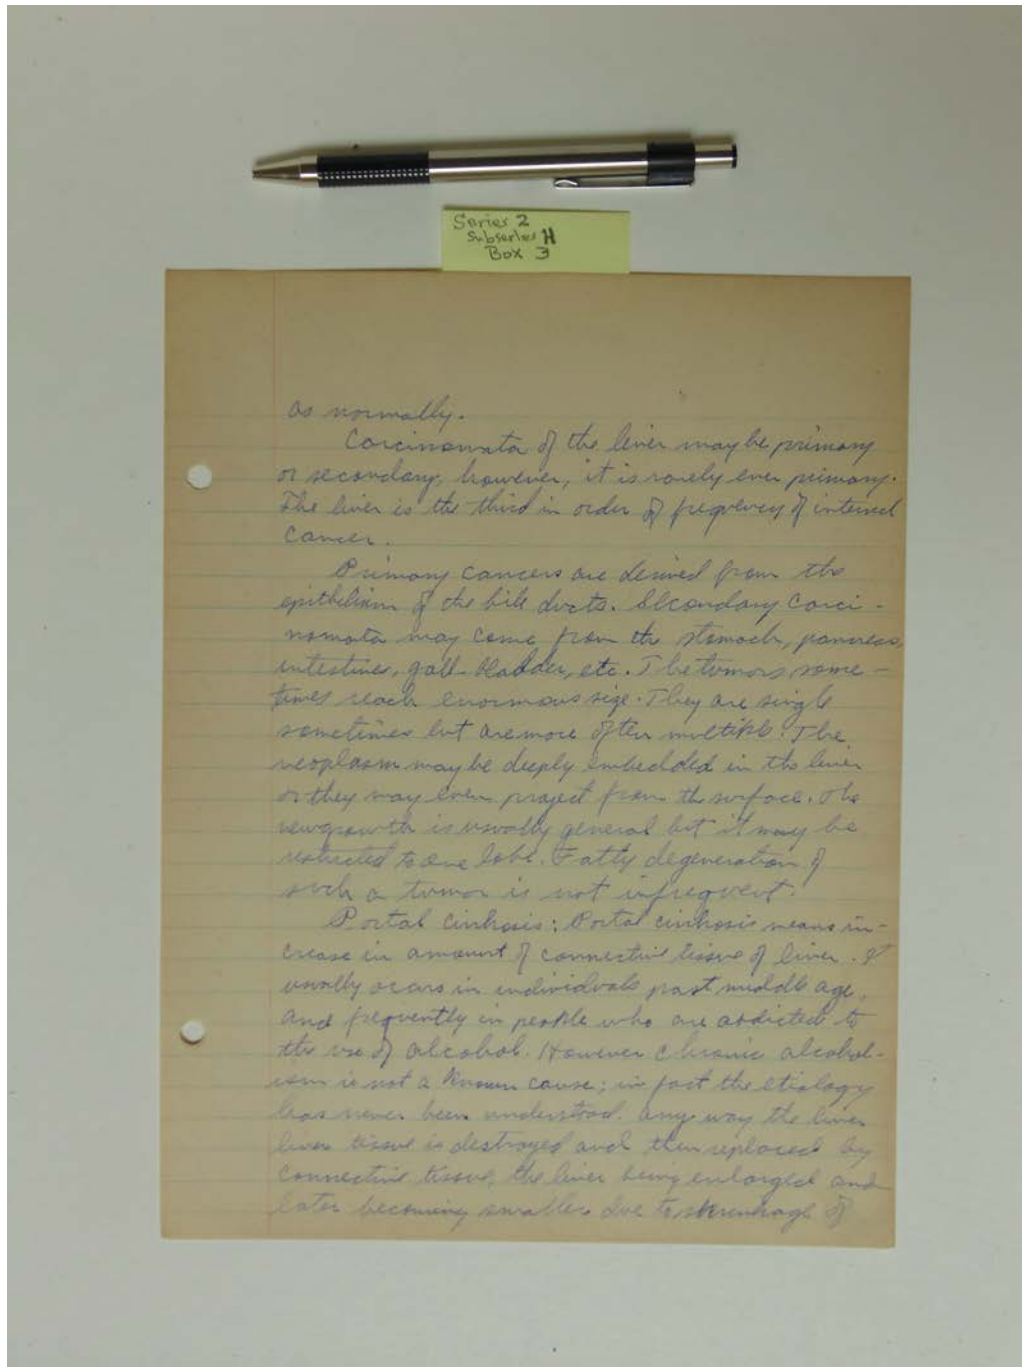 Series 2
Subseries H
Box 3
as normally.
Carcinomata of the liver may be primary
or secondary, however, it is rarely ever primary.
The liver is the third in order of frequency of internal
cancer.
Primary cancers are derived from the
epithelium of the bile ducts. Secondary carci-
nomata may come from the stomach, pancreas,
intestines, gall bladder, etc. The tumors some-
times reach enormous size. They are single
sometimes but are more often multiple. The
neoplasm may be deeply embedded in the liver
or they may even project from the surface. The
newgrowth is usually general but it may be
restricted to one lobe. Fatty degeneration of
such a tumor is not infrequent.
Portal cirrhosis: Portal cirrhosis means in-
crease in amount of connective tissue of liver. It
usually occurs in individuals past middle age,
and frequently in people who are addicted to
the use of alcohol. However chronic alcohol-
ism is not a known cause; in fact the etiology
has never been understood. Any way the liver
liver tissue is destroyed and then replaced by
connective tissue, the liver being enlarged and
later becoming smaller due to shrinkage of